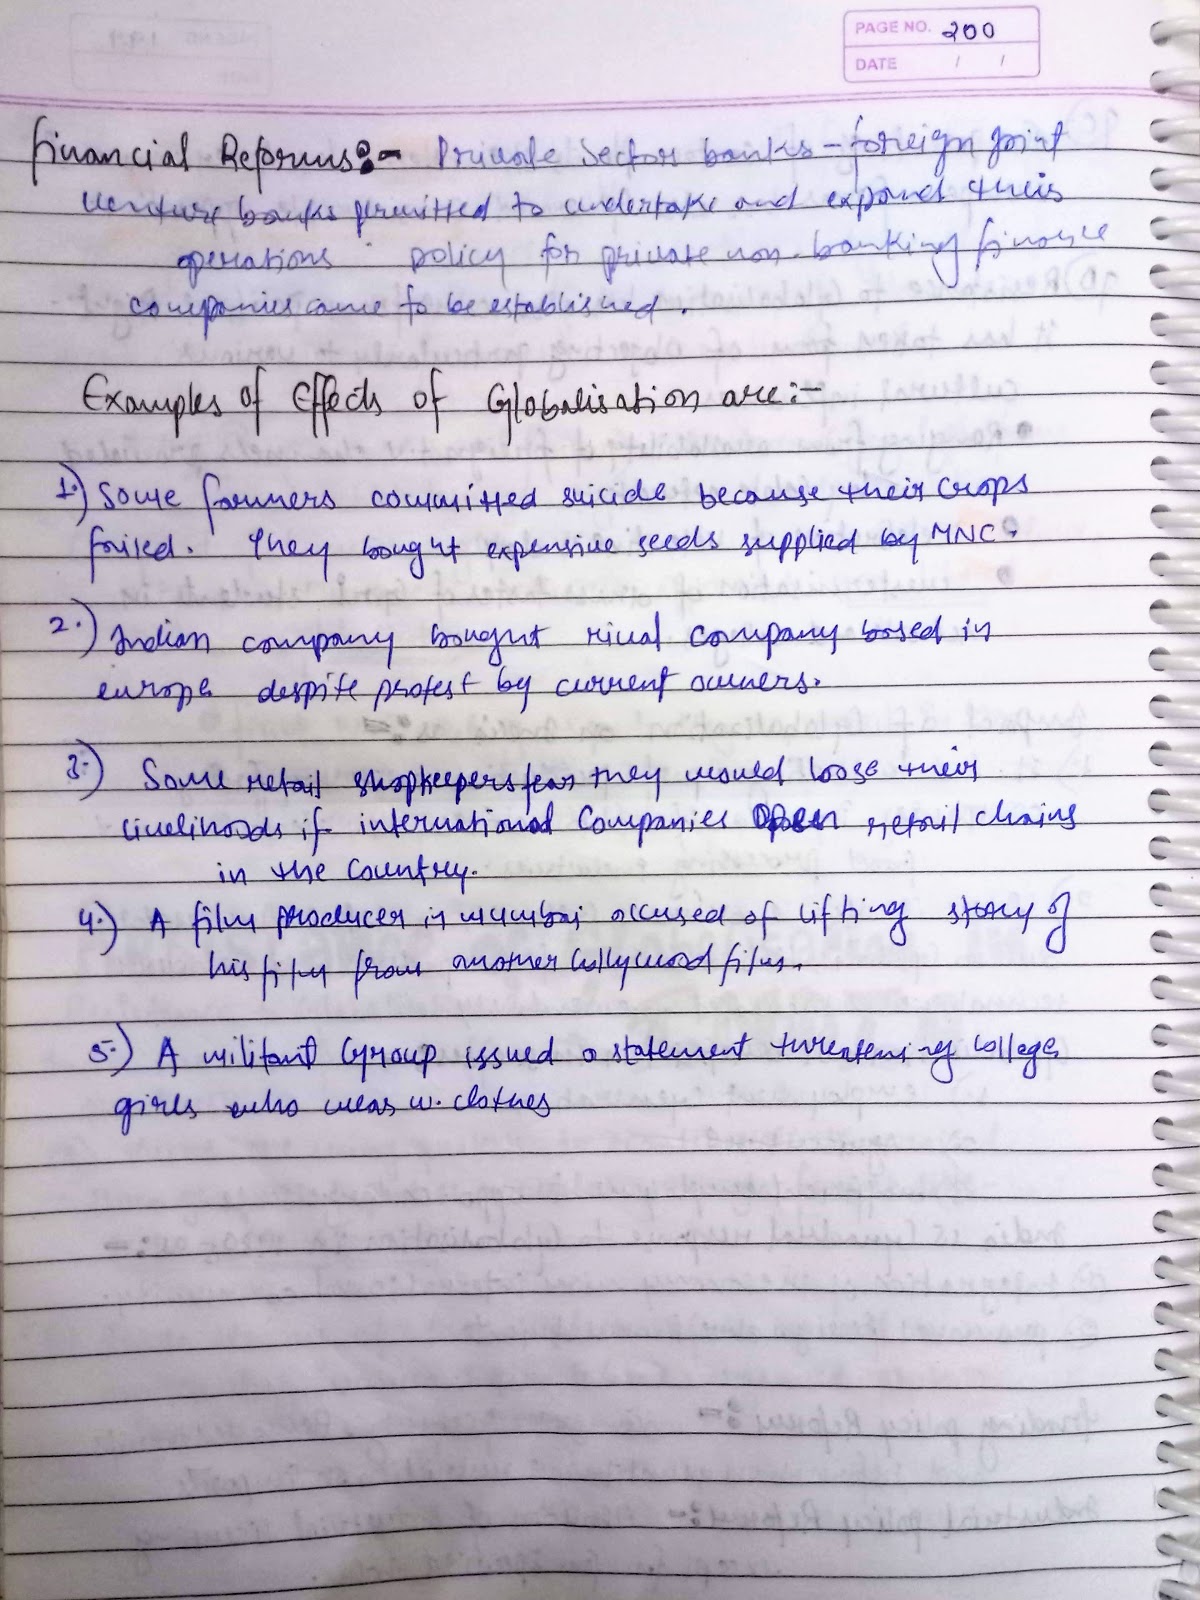 PAGE NO. 200
DATE / /
Financial Reforms:- Private Sector banks - foreign joint
venture banks permitted to undertake and expand their
operations policy for private non-banking finance
companies came to be established.
Examples of Effects of Globalisation are:-
1.) Some farmers committed suicide because their crops
failed. They bought expensive seeds supplied by MNC.
2.) Indian company bought rival company based in
europe despite protest by current owners.
3.) Some retail shopkeepers fear they would loose their
livelihoods if international Companies open retail chains
in the country.
4.) A film producer in mumbai accused of lifting story of
his film from another hollywood film.
5.) A militant Group issued a statement threatening college
girls who wear w. clothes